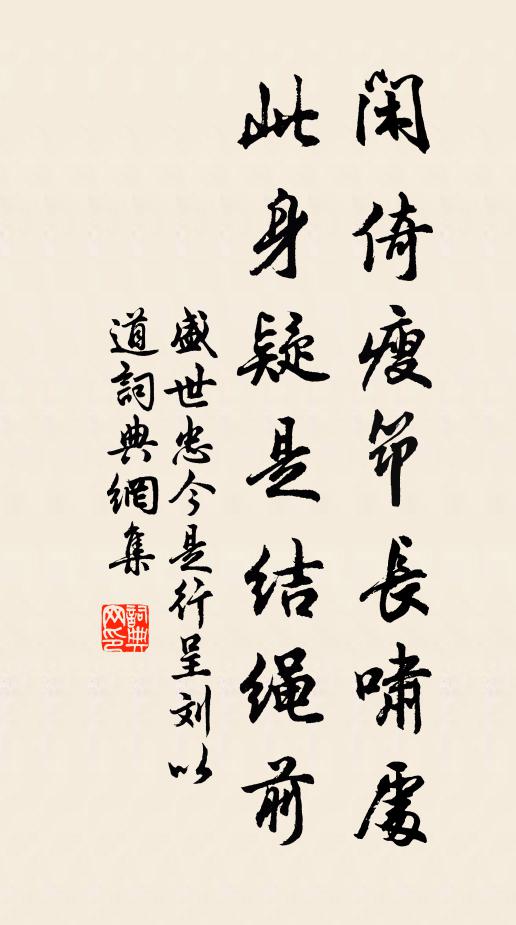 闲倚瘦筇長嘯處
此身疑是结绳前
盛世忠今是行呈刘以
道詞典網集
詞典
网印